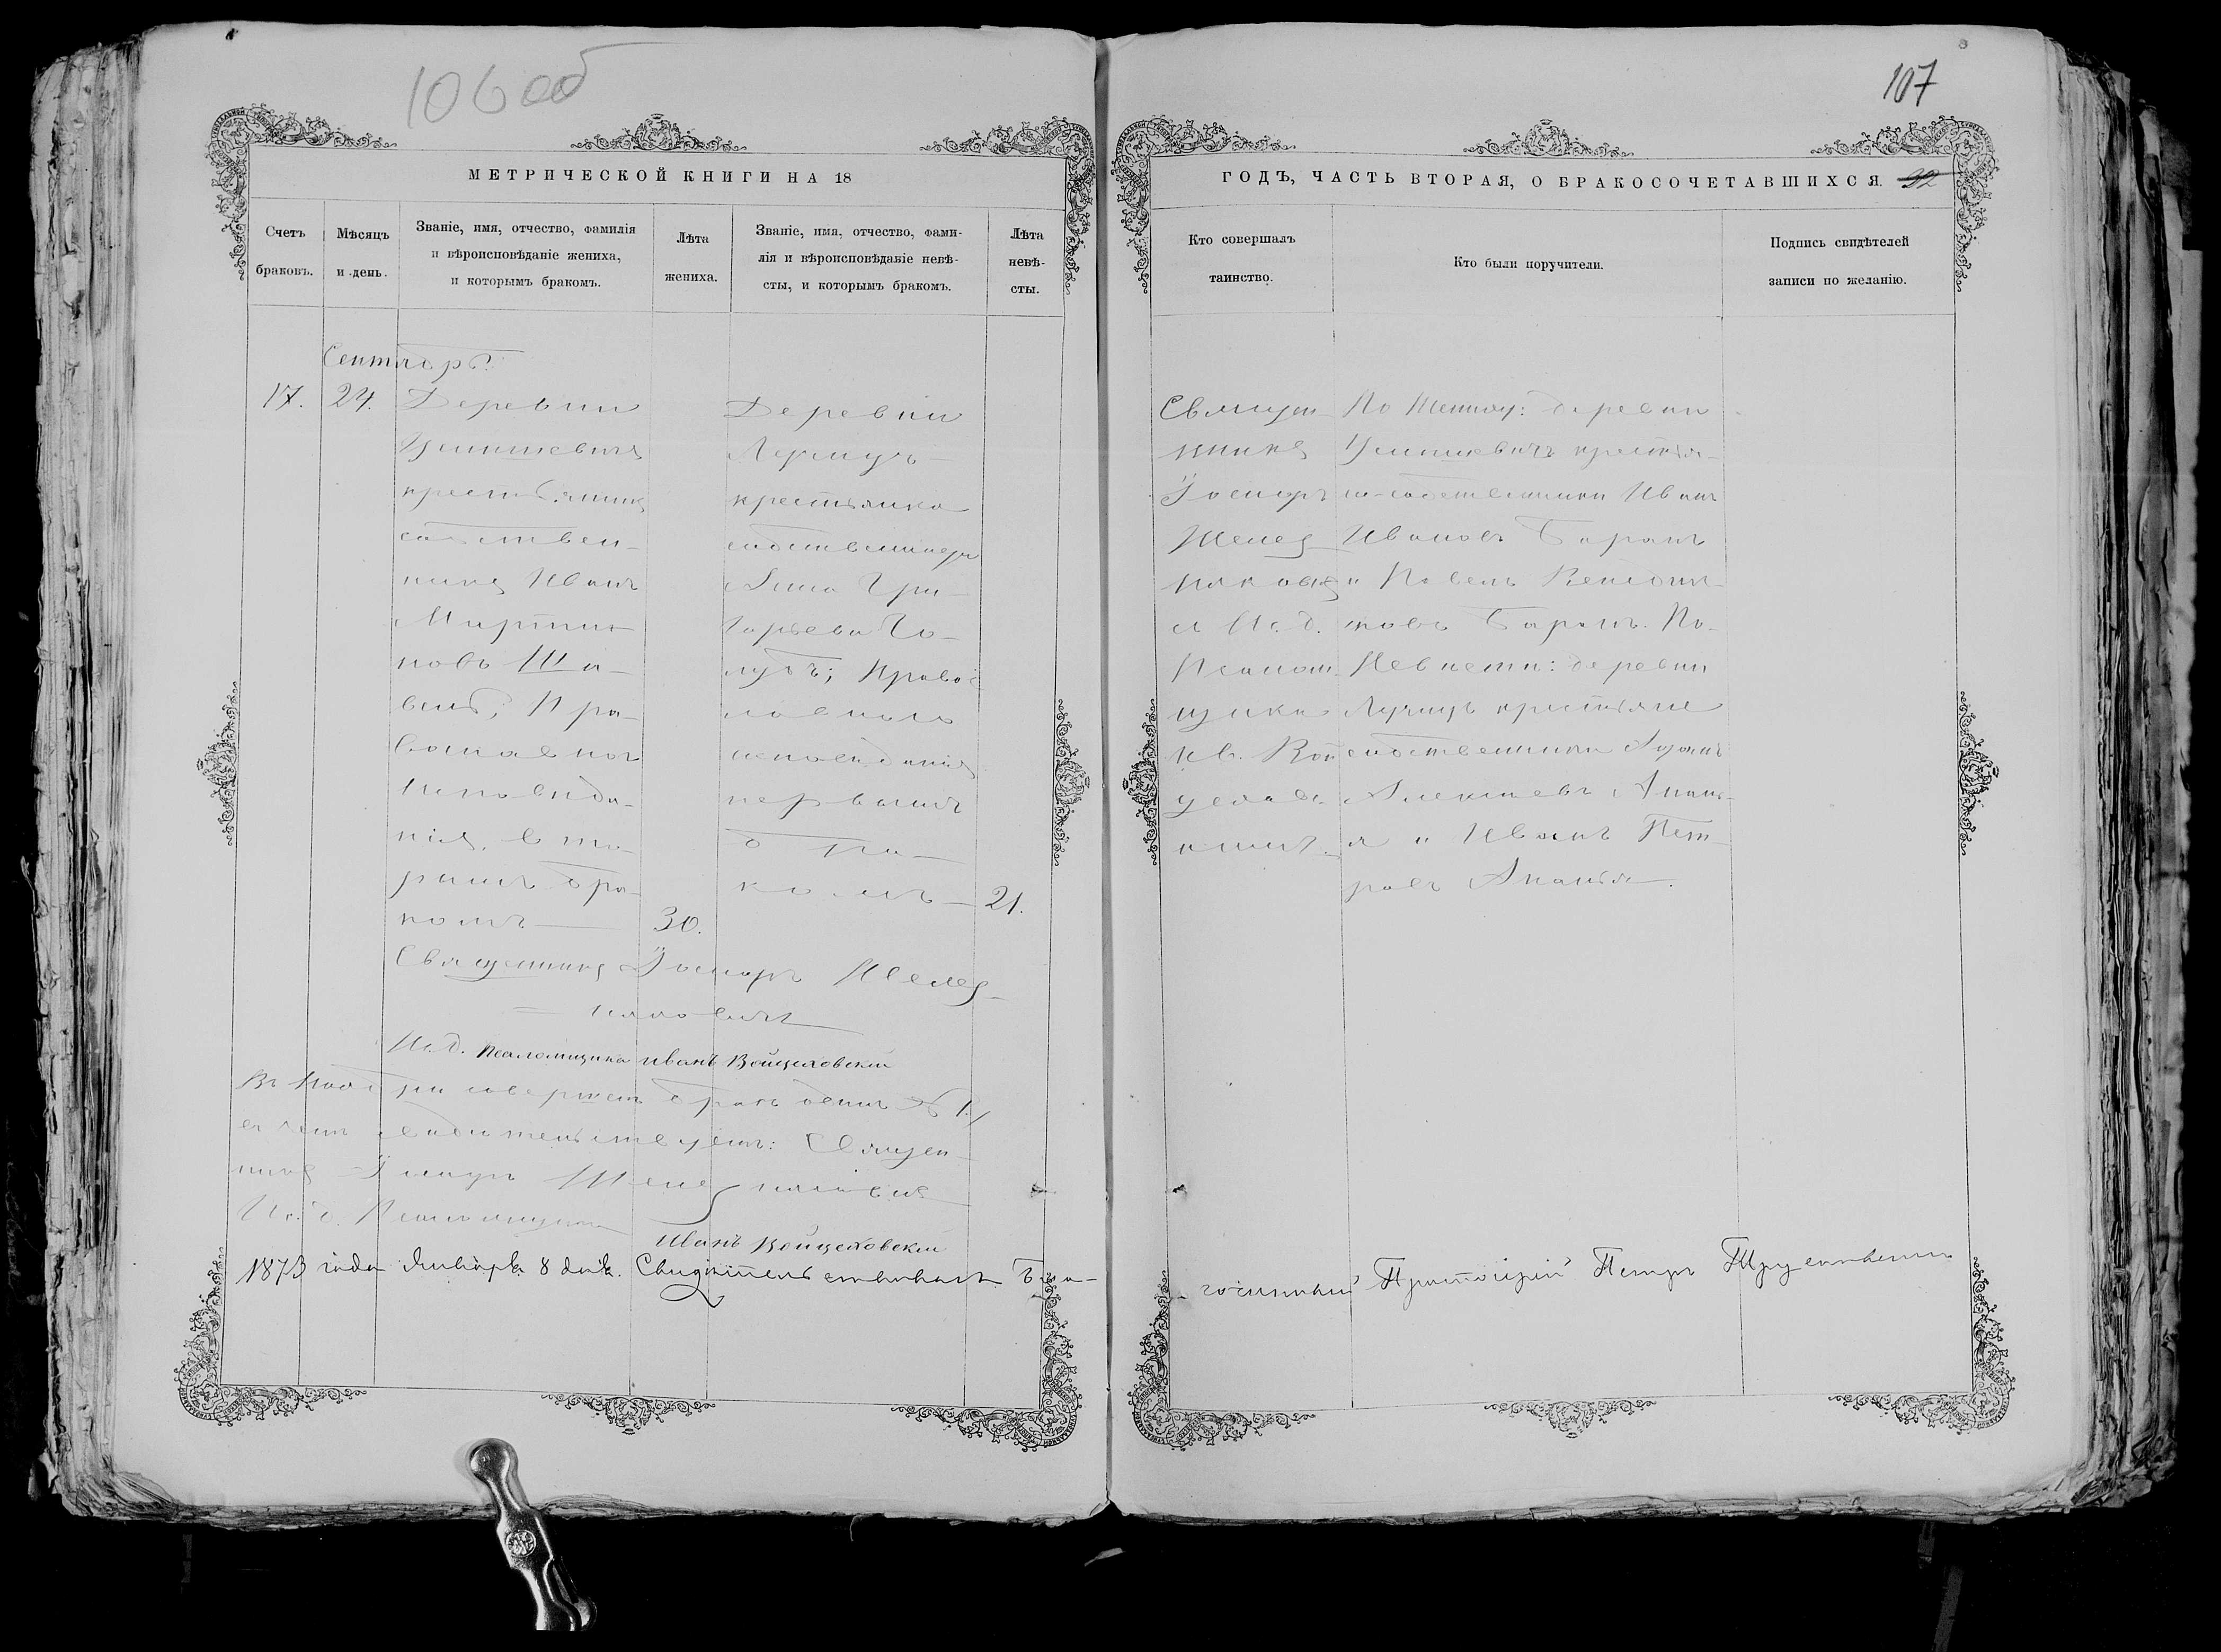 106 об
МЕТРИЧЕСКОЙ КНИГИ НА 18
Счетъ
браковъ.
Мѣсяцъ
и день.
Званіе, имя, отчество, фамилія
и вѣроисповѣданіе жениха,
и которымъ бракомъ.
Лѣта
жениха.
Званіе, имя, отчество, фами-
лія и вѣроисповѣданіе невѣ-
сты, и которымъ бракомъ.
Лѣта
невѣ-
сты.
Сентябрь.
17.
24.
Деревни
крестьянинъ
собствен-
никъ Иванъ
Марти-
новъ Ша-
вель; Пра-
вославнаго
исповѣда-
нія, вто-
рымъ бра-
комъ
30.
Деревни
Лучицъ
крестьянка
собственница
Анна Гри-
горьева Го-
лубъ; Право-
славнаго
исповѣданія
первымъ
бра-
комъ
21.
Священникъ Іосифъ Шелеп-
Ис. д. Псаломщика Иванъ Войцеховскій
совершенъ бракъ одинъ № 1,
въ чемъ свидѣтельствуемъ: Священ-
никъ Іосифъ
Ис. д. Псаломщика
Иванъ Войцеховскій
1873 года Января 8 дня. Свидѣтельствовалъ Бла-
107
ГОДЪ, ЧАСТЬ ВТОРАЯ, О БРАКОСОЧЕТАВШИХСЯ. 92
Кто совершалъ
таинство.
Кто были поручители.
Подпись свидѣтелей
записи по желанію.
Священ-
никъ
Іосифъ
и Ис. д.
Псалом-
щика
Ив. Вой-
цехов-
По Женихѣ: деревни
крестья-
не-собственники Иванъ
Ивановъ Баранъ
и Павелъ Венедик-
товъ Баранъ. По
Невѣстѣ: деревни
Лучицъ крестьяне
собственники
Алексѣевъ Анань-
я и Иванъ Пет-
ровъ Ананья.
гочинный Протоіерей Петръ